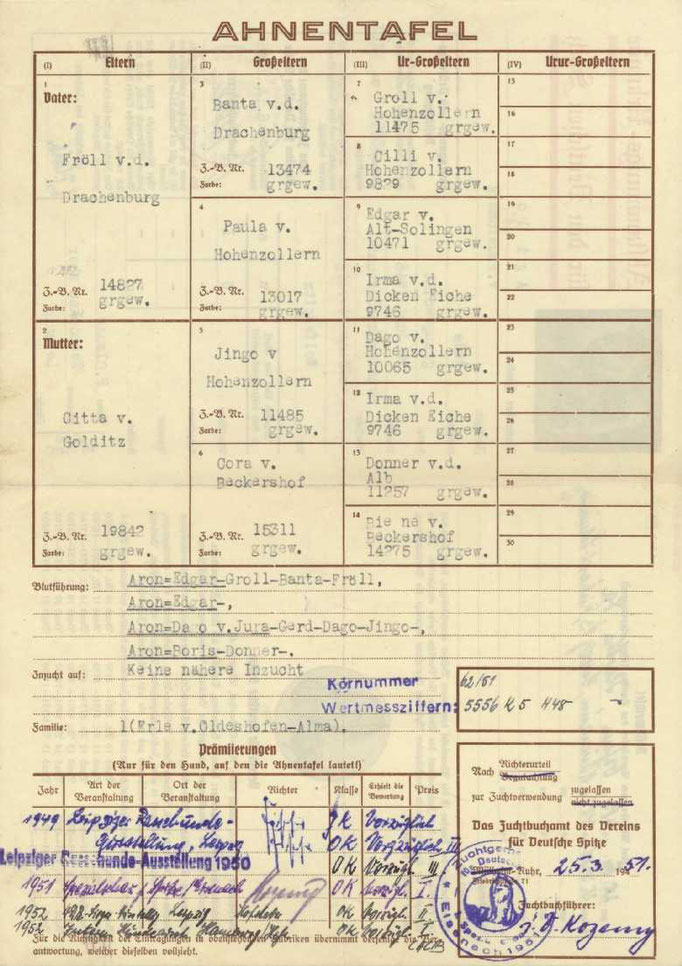 AHNENTAFEL
(I) Eltern
(II) Großeltern
(III) Ur-Großeltern
(IV) Urur-Großeltern
1
Vater:
Fröll v.d.
Drachenburg
Z.-B. Nr. 14827
Farbe: grgew.
2
Mutter:
Citta v.
Golditz
Z.-B. Nr. 19842
Farbe: grgew.
3
Banta v.d.
Drachenburg
Z.-B. Nr. 13474
Farbe: grgew.
4
Paula v.
Hohenzollern
Z.-B. Nr. 13017
Farbe: grgew.
5
Jingo v
Hohenzollern
Z.-B. Nr. 11485
Farbe: grgew.
6
Cora v.
Beckershof
Z.-B. Nr. 15311
Farbe: grgew.
7
Groll v.
Hohenzollern
11475 grgew.
8
Cilli v.
Hohenzollern
9829 grgew.
9
Edgar v.
Alt-Solingen
10471 grgew.
10
Irma v.d.
Dicken Eiche
9746 grgew.
11
Dago v.
Hohenzollern
10065 grgew.
12
Irma v.d.
Dicken Eiche
9746 grgew.
13
Donner v.d.
Alb
11257 grgew.
14
Bie ne v.
Beckershof
14275 grgew.
15
16
17
18
19
20
21
22
23
24
25
26
27
28
29
30
Blutführung: Aron=Edgar-Groll-Banta-Fröll,
Aron=Edgar-,
Aron=Dago v.Jura-Gerd-Dago-Jingo-,
Aron=Boris-Donner-.
Inzucht auf: Keine nähere Inzucht
Körnummer 62/51
Wertmessziffern: 5556 K5 448
Familie: 1(Erle v.Oldeshofen-Alma).
Prämiierungen
(Nur für den Hund, auf den die Ahnentafel lautet!)
Jahr
Art der Veranstaltung
Ort der Veranstaltung
Richter
Klasse
Erhielt die Bewertung
Preis
1949 Leipziger Rassehunde- JK Vorzüglich
Ausstellung, Leipzig OK Vorzüglich III
Leipziger Rassehunde-Ausstellung 1950 OK Vorzügl. III
1951 OK Vorzügl. I.
1952 Leipzig OK Vorzügl. II
1952 Hamburg OK Vorzügl. I
Für die Richtigkeit der Eintragungen in obenstehenden Rubriken übernimmt derjenige die Ver-
antwortung, welcher dieselben vollzieht.
Nach Richterurteil
Begutachtung
zur Zuchtverwendung zugelassen
nicht zugelassen
Das Zuchtbuchamt des Vereins
für Deutsche Spitze
25.3. 1951.
Zuchtbuchführer: